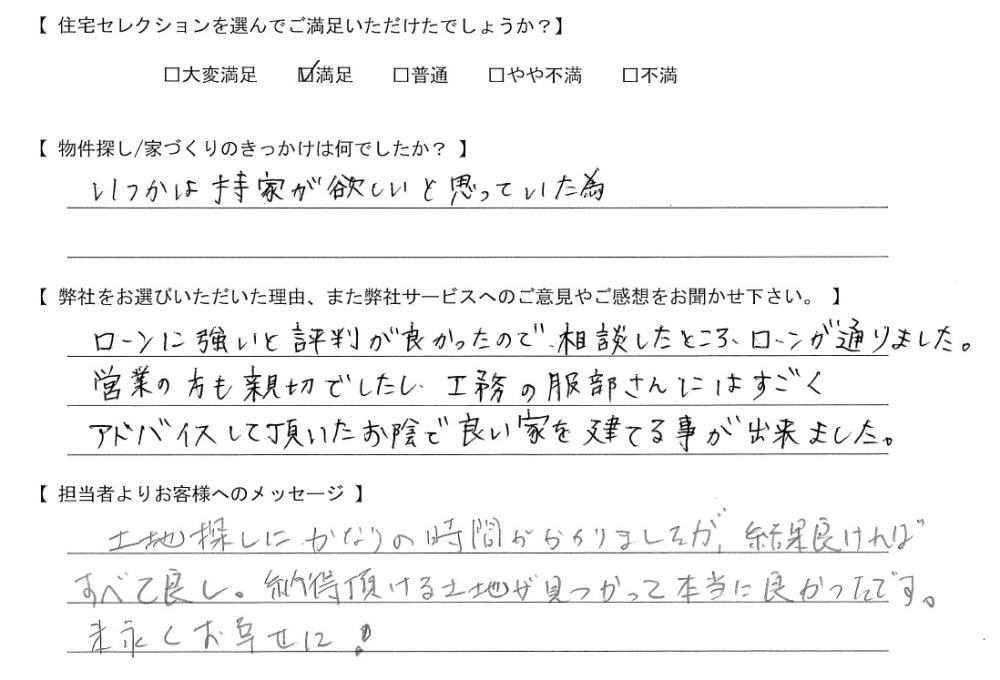 【 住宅セレクションを選んでご満足いただけたでしょうか？】
□大変満足 ☑満足 □普通 □やや不満 □不満
【 物件探し/家づくりのきっかけは何でしたか？ 】
いつかは持家が欲しいと思っていた為
【 弊社をお選びいただいた理由、また弊社サービスへのご意見やご感想をお聞かせ下さい。 】
ローンに強いと評判が良かったので、相談したところ、ローンが通りました。
営業の方も親切でしたし、工務の服部さんにはすごく
アドバイスして頂いたお陰で良い家を建てる事が出来ました。
【 担当者よりお客様へのメッセージ 】
土地探しにかなりの時間がかかりましたが、結果良ければ
すべて良し。納得頂ける土地が見つかって本当に良かったです。
末永くお幸せに！